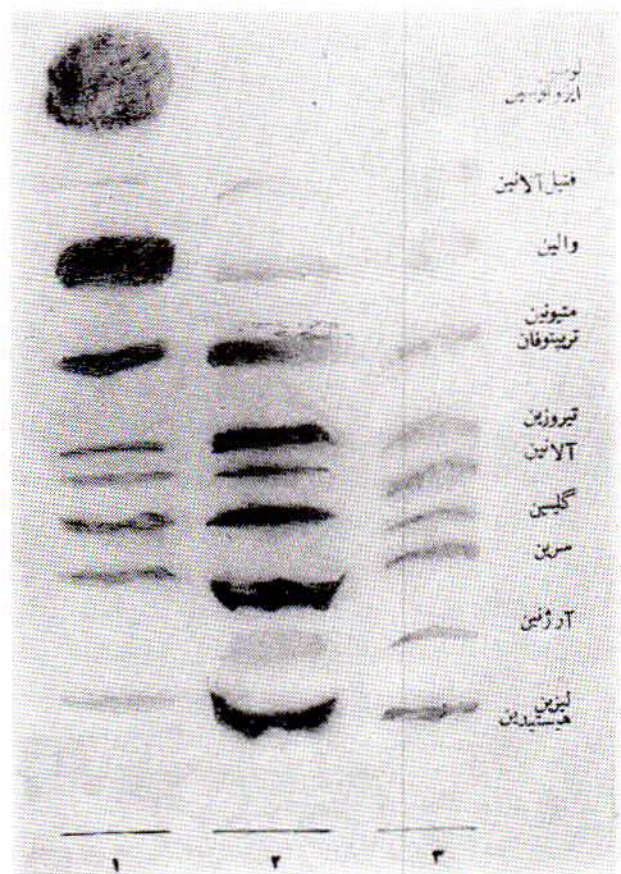 لوسین
ایزولوسین
فنیل آلانین
والین
متیونین
تریپتوفان
تیروزین
آلانین
گلیسین
سرین
آرژنین
لیزین
هیستیدین
۱ ۲ ۳